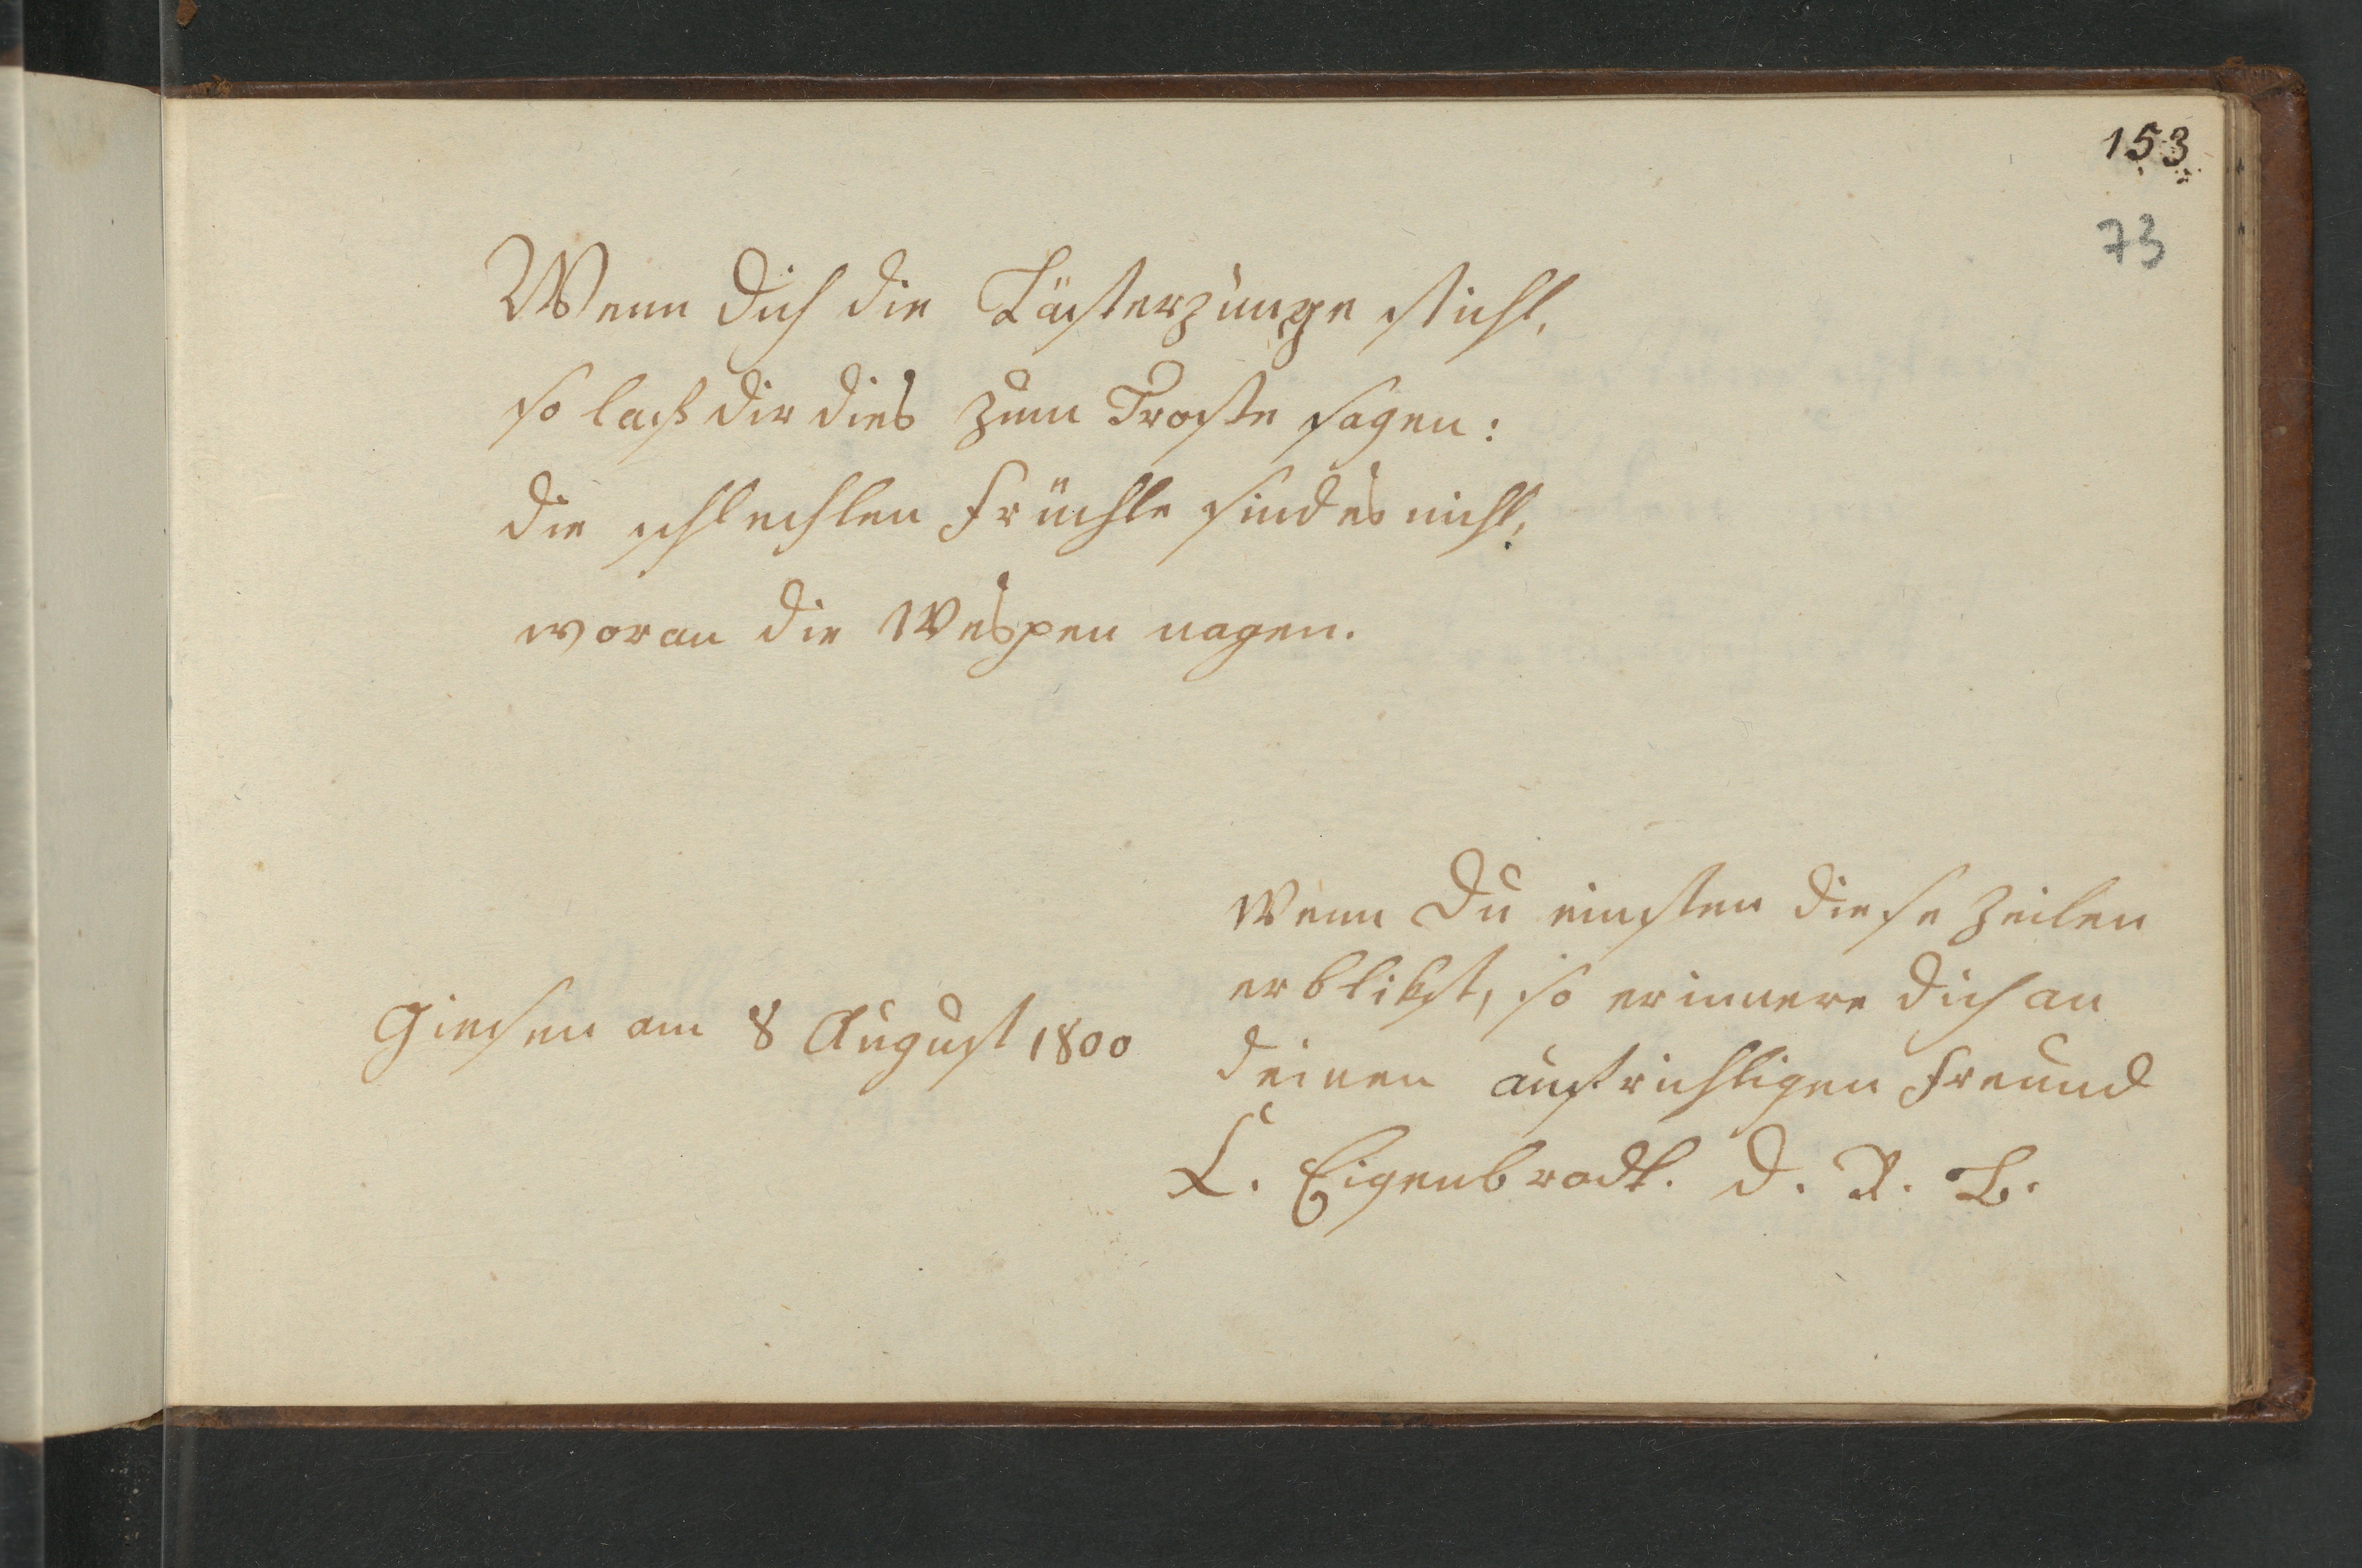 153
73
Wenn dich die Lästerzunge sticht,
so laß dir dies zum Troste sagen:
die schlechten Früchte sind es nicht,
woran die Wespen nagen.
Wenn Du einsten diese Zeilen
erblikst, so erinnere dich an
Giesen am 8 August 1800
deinen aufrichtigen Freund
L. Eigenbrodt. d. R. B.